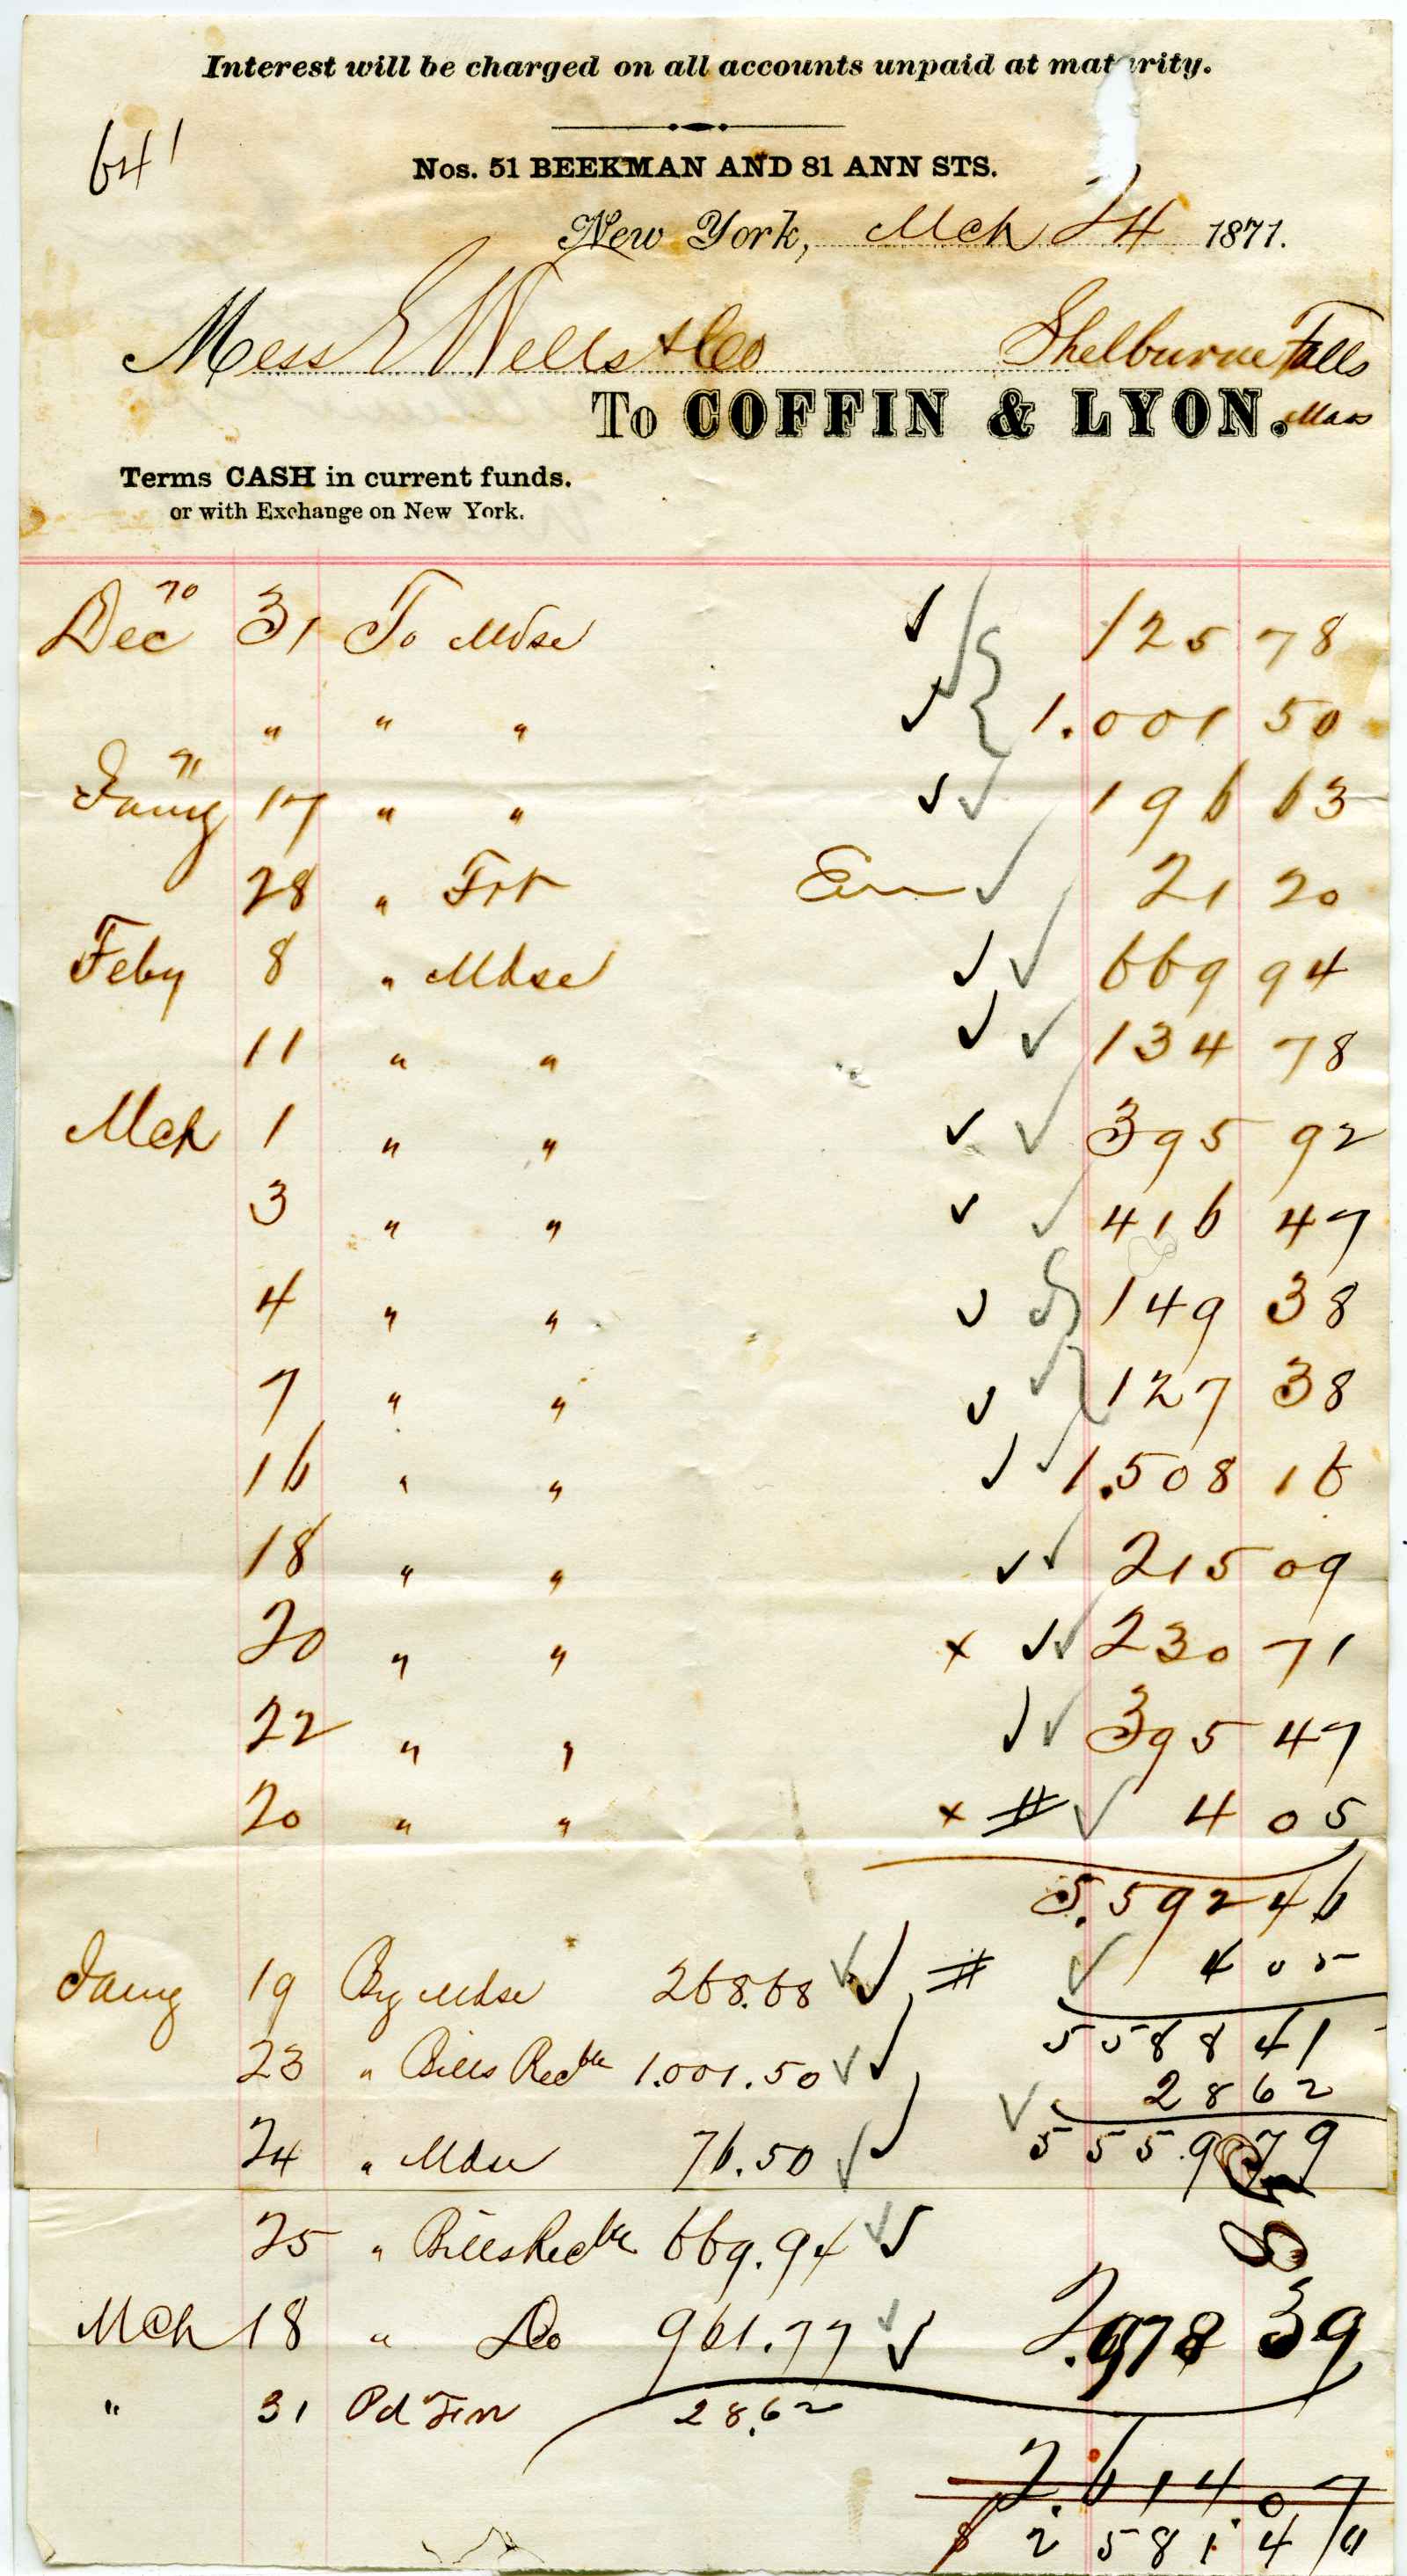 Interest will be charged on all accounts unpaid at maturity.
641
Nos. 51 BEEKMAN AND 81 ANN STS.
New York, Mch 24 1871.
Mess E Wells & Co Shelburne Falls
To COFFIN & LYON. Mass
Terms CASH in current funds.
or with Exchange on New York.
Dec 70 31 To Mdse 125 78
" " " 1.001 50
Jany 71 17 " " 196 63
28 " Frt 21 20
Feby 8 " Mdse 669 94
11 " " 134 78
Mch 1 " " 395 92
3 " " 416 47
4 " " 149 38
7 " " 127 38
16 " " 1.508 16
18 " " 215 09
20 " " x 230 71
22 " " 395 47
20 " " x # 4 05
5.592 46
Jany 19 By Mdse 268.68 # 4 05
5588 41
23 " Bills Recble 1.001.50
28 62
24 " Mdse 76.50 555.9 79
25 " Bills Recble 669.94
Mch 18 " Do 961.77 2.978 39
" 31 Pd Frt 28.62
2.614 07
$ 2 581.4